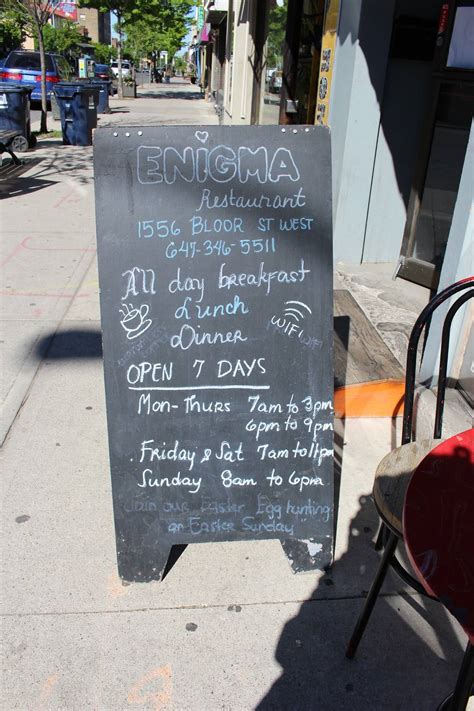 ENIGMA
Restaurant
1556 BLOOR ST WEST
647-346-5511
All day breakfast
Lunch
Dinner
WIFI
OPEN 7 DAYS
Mon-Thurs 7am to 3pm
6pm to 9pm
Friday & Sat 7am to 11pm
Sunday 8am to 6pm
Join our Easter Egg hunting
on Easter Sunday